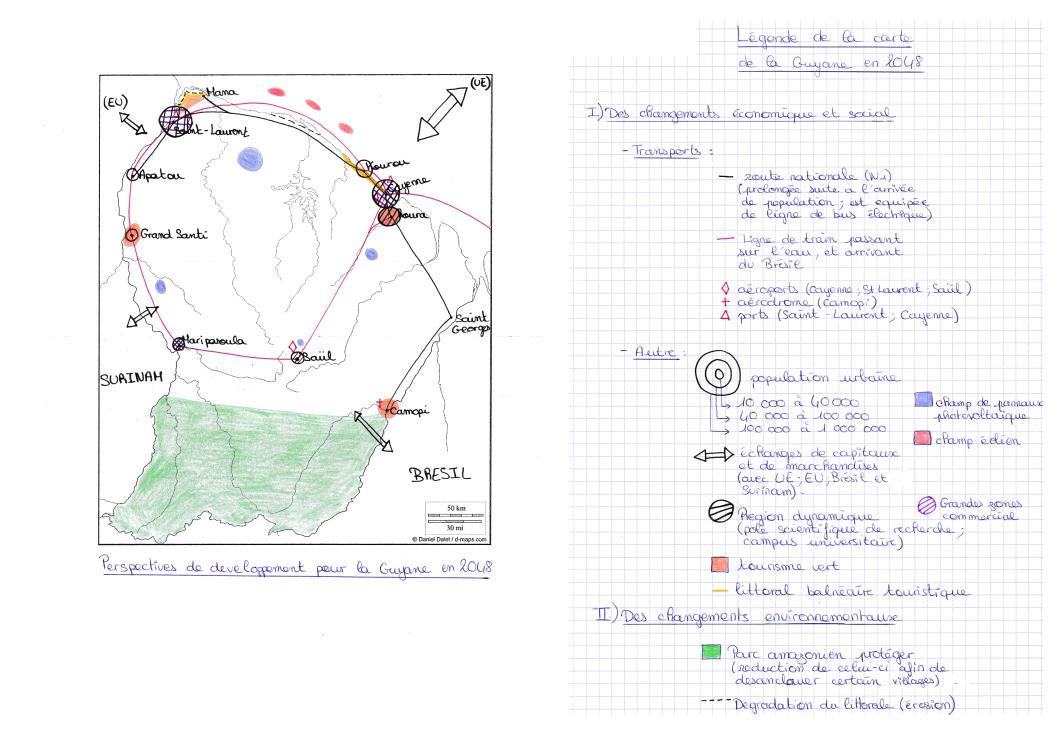 (UE)
Mana
(EU)
Saint-Laurent
Kourou
Apatou
Cayenne
Roura
Grand Santi
Saint
Georges
Maripasoula
Saül
SURINAM
Camopi
BRESIL
50 km
30 mi
© Daniel Dalet / d-maps.com
Perspectives de developpement pour la Guyane en 2048
Légende de la carte
de la Guyane en 2048
I) Des changements économique et social
- Transports :
route nationale (N1)
(prolongée suite a l'arrivée
de population ; est equipée
de ligne de bus électrique)
Ligne de train passant
sur l'eau, et arrivant
du Brésil
aéroports (Cayenne ; St Laurent ; Saül)
aérodrome (Camopi)
ports (Saint-Laurent ; Cayenne)
- Autre :
population urbaine
10 000 à 40 000
40 000 à 100 000
100 000 à 1 000 000
champ de panneaux
photovoltaïque
champ éolien
échanges de capitaux
et de marchandises
(avec UE ; EU, Brésil et
Surinam).
Région dynamique
(pole scientifique de recherche ;
campus universitaire)
Grandes zones
commercial
tourisme vert
littoral balnéaire touristique
II) Des changements environnementaux
Parc amazonien protéger
(reduction de celui-ci afin de
desanclaver certain villages).
Dégradation du littorale (érosion)